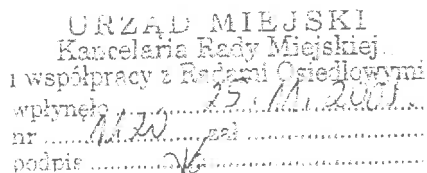 URZĄD MIEJSKI
Kancelaria Rady Miejskiej
i współpracy z Radami Osiedlowymi
wpłynęło 25.11.2005.
nr 1120 zał
podpis